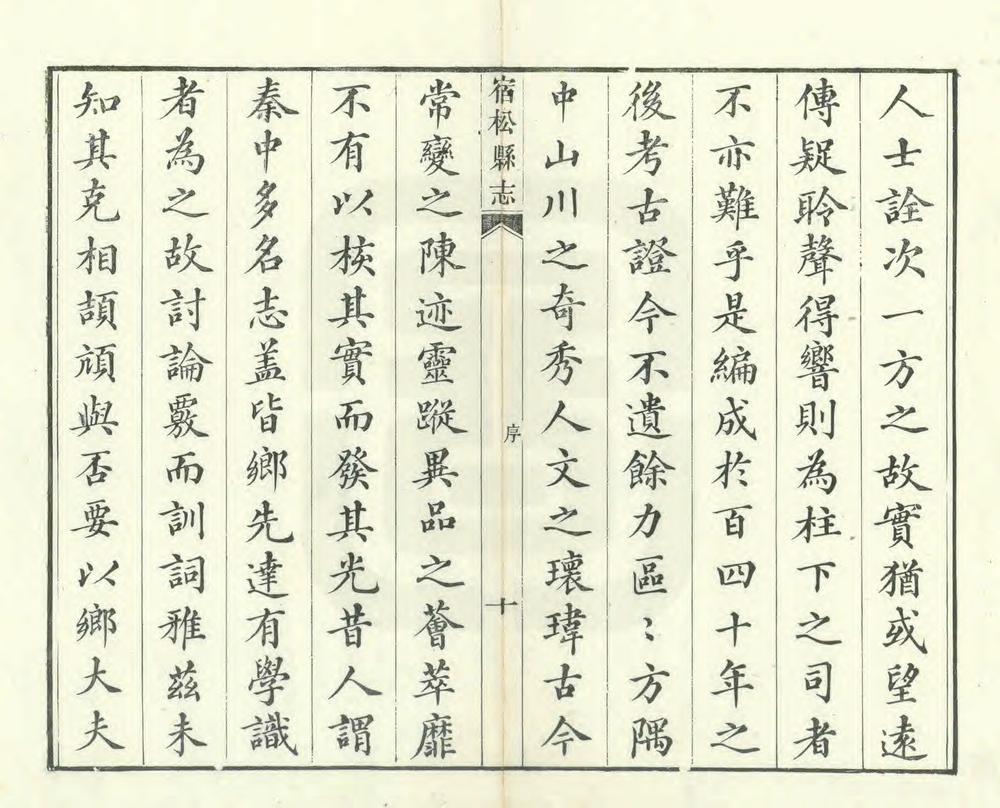 人士詮次一方之故實猶或望遠
傳疑聆聲得響則為柱下之司者
不亦難乎是編成於百四十年之
後考古證今不遺餘力區〻方隅
中山川之奇秀人文之瓌瑋古今
宿松縣志
序
十
常變之陳迹靈蹤異品之薈萃靡
不有以核其實而發其光昔人謂
秦中多名志盖皆鄉先達有學識
者為之故討論覈而訓詞雅茲未
知其克相頡頏與否要以鄉大夫